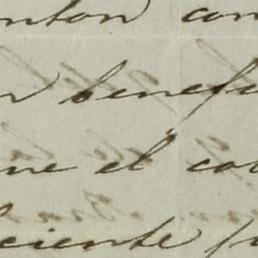 nton con
n benefi
ne el co
ciente p